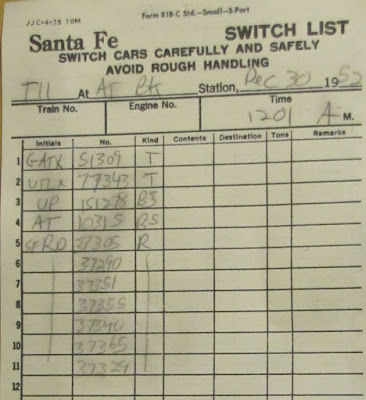 JJC-4-75 70M Form 818-C Std.—Small—3-Part
Santa Fe SWITCH LIST
SWITCH CARS CAREFULLY AND SAFELY
AVOID ROUGH HANDLING
At AT Station, Dec 30 1952
Train No. Engine No. Time
1201 A M.
Initials No. Kind Contents Destination Tons Remarks
1 GATX 51309 T
2 UTLX 77343 T
3 UP 151278 BS
4 AT 10315 RS
5 SFRD 37305 R
6 37290
7 37351
8 37355
9 37340
10 37365
11 37329
12